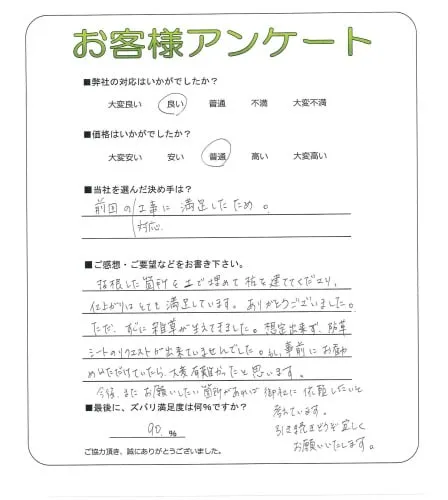 お客様アンケート
■弊社の対応はいかがでしたか？
大変良い 良い 普通 不満 大変不満
■価格はいかがでしたか？
大変安い 安い 普通 高い 大変高い
■当社を選んだ決め手は？
前回の工事に満足したため。
対応
■ご感想・ご要望などをお書き下さい。
抜根した箇所を土で埋めて杭を建ててくださり、
仕上がりはとても満足しています。ありがとうございました。
ただ、すぐに雑草が生えてきました。想定出来ず、防草
シートのリクエストが出来ていませんでした。もし、事前にお勧
めいただけていたら、大変有難かったと思います。
今後、またお願いしたい箇所があれば御社に依頼したいと
考えています。
引き続きどうぞ宜しく
お願いいたします。
■最後に、ズバリ満足度は何％ですか？
90 %
ご協力頂き、誠にありがとうございました。